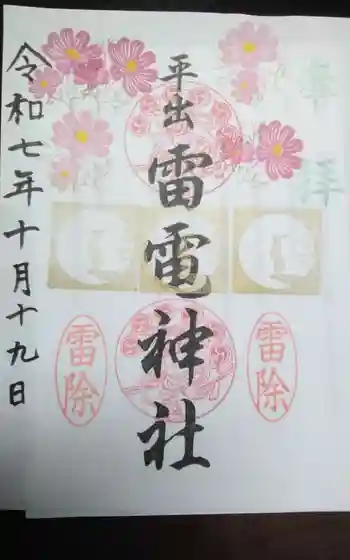 奉拝
平出
雷電神社
雷除
雷除
令和七年十月十九日